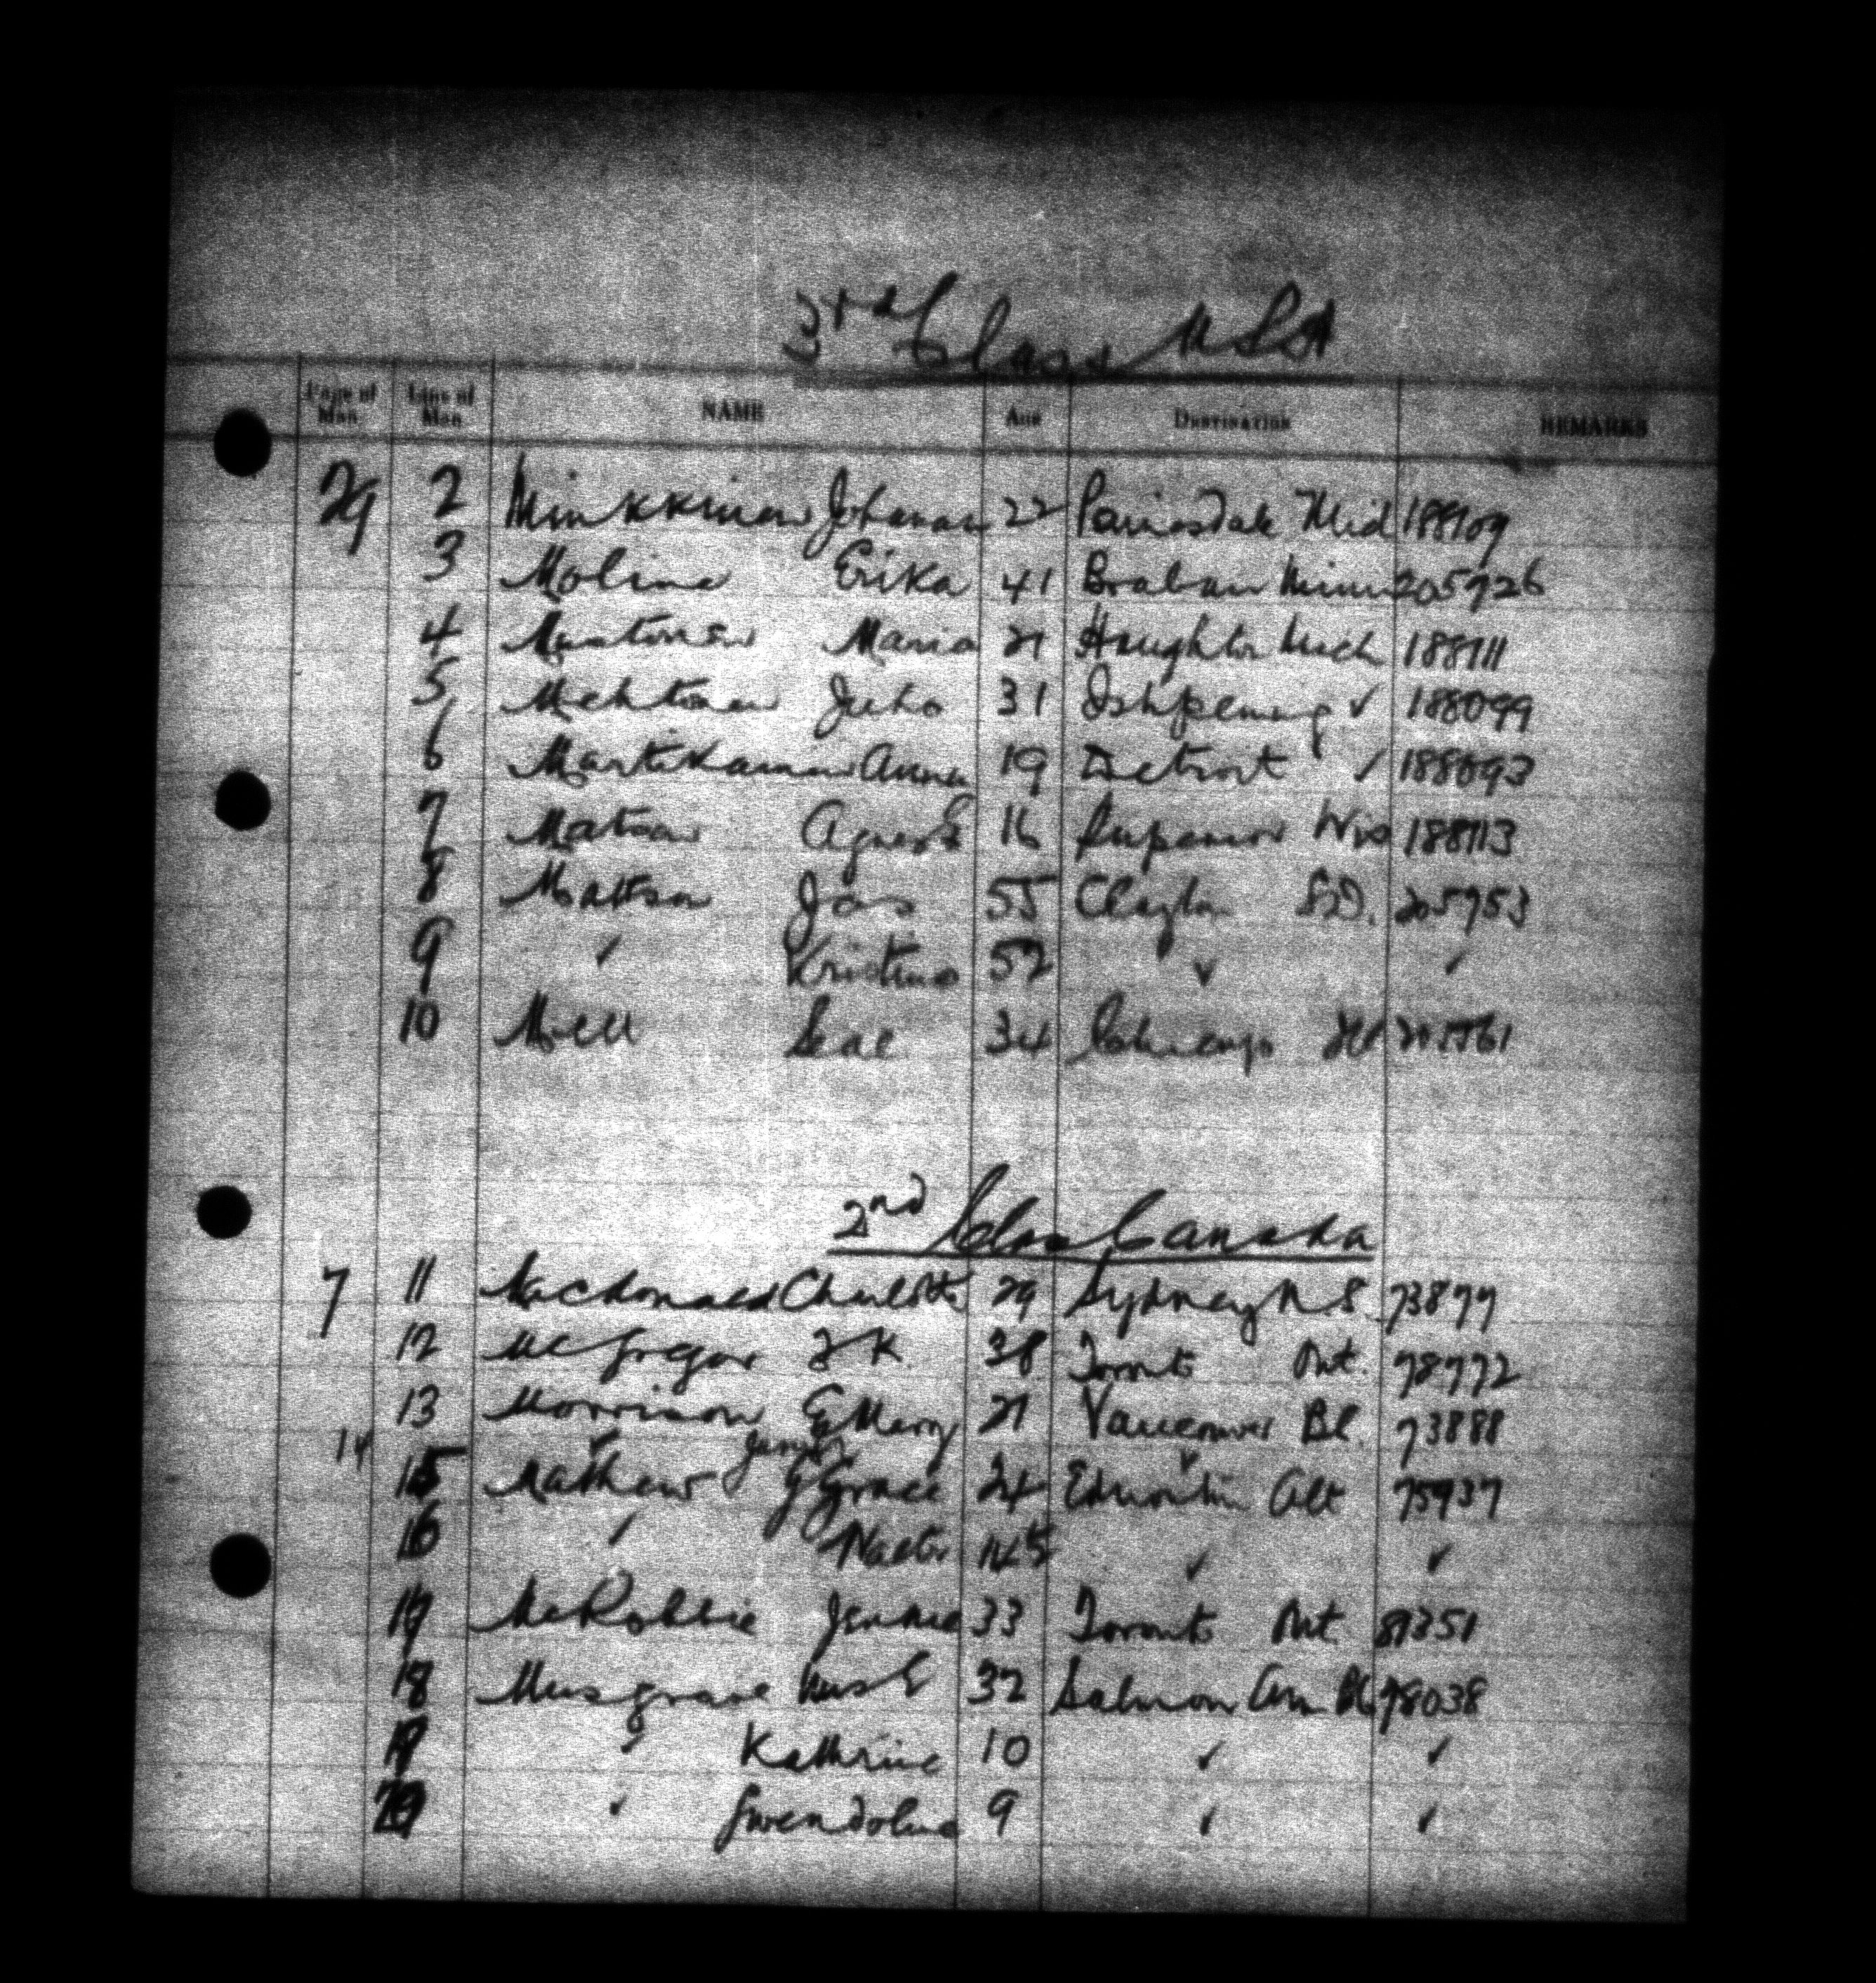 3rd Class USA
Page of Man Line of Man NAME AGE DESTINATION REMARKS
29 2 Minkkinen Johanan 22 Painesdale Mid 188109
3 Molina Erika 41 Braban Minn 205726
4 Maria 21 Houghton Mich 188111
5 Juho 31 Ishpeming ✓ 188099
6 Martikainen Anna 19 Detroit ✓ 188093
7 Matson Agnes E 16 Superior Wis 188113
8 Mattson Jas 55 Clayton S.D. 205753
9 ✓ Kristina 52 ✓ ✓
10 34 Chicago Ill
2nd Class Canada
7 11 MacDonald 29 Sydney N S. 73877
12 McGregor J K. 38 Toronto Ont. 78772
13 Morrison G Mary 21 Vancouver BC. 73888
14 ✓ ✓
15 Mathew G Grace 24 Edmonton Alt 75937
16 ✓ ✓ ✓
17 McRobbie Jennie 33 Toronto Ont. 81351
18 Musgrave Mrs E 32 Salmon Arm BC 78038
19 ✓ Kathrine 10 ✓ ✓
20 ✓ Gwendoline 9 ✓ ✓